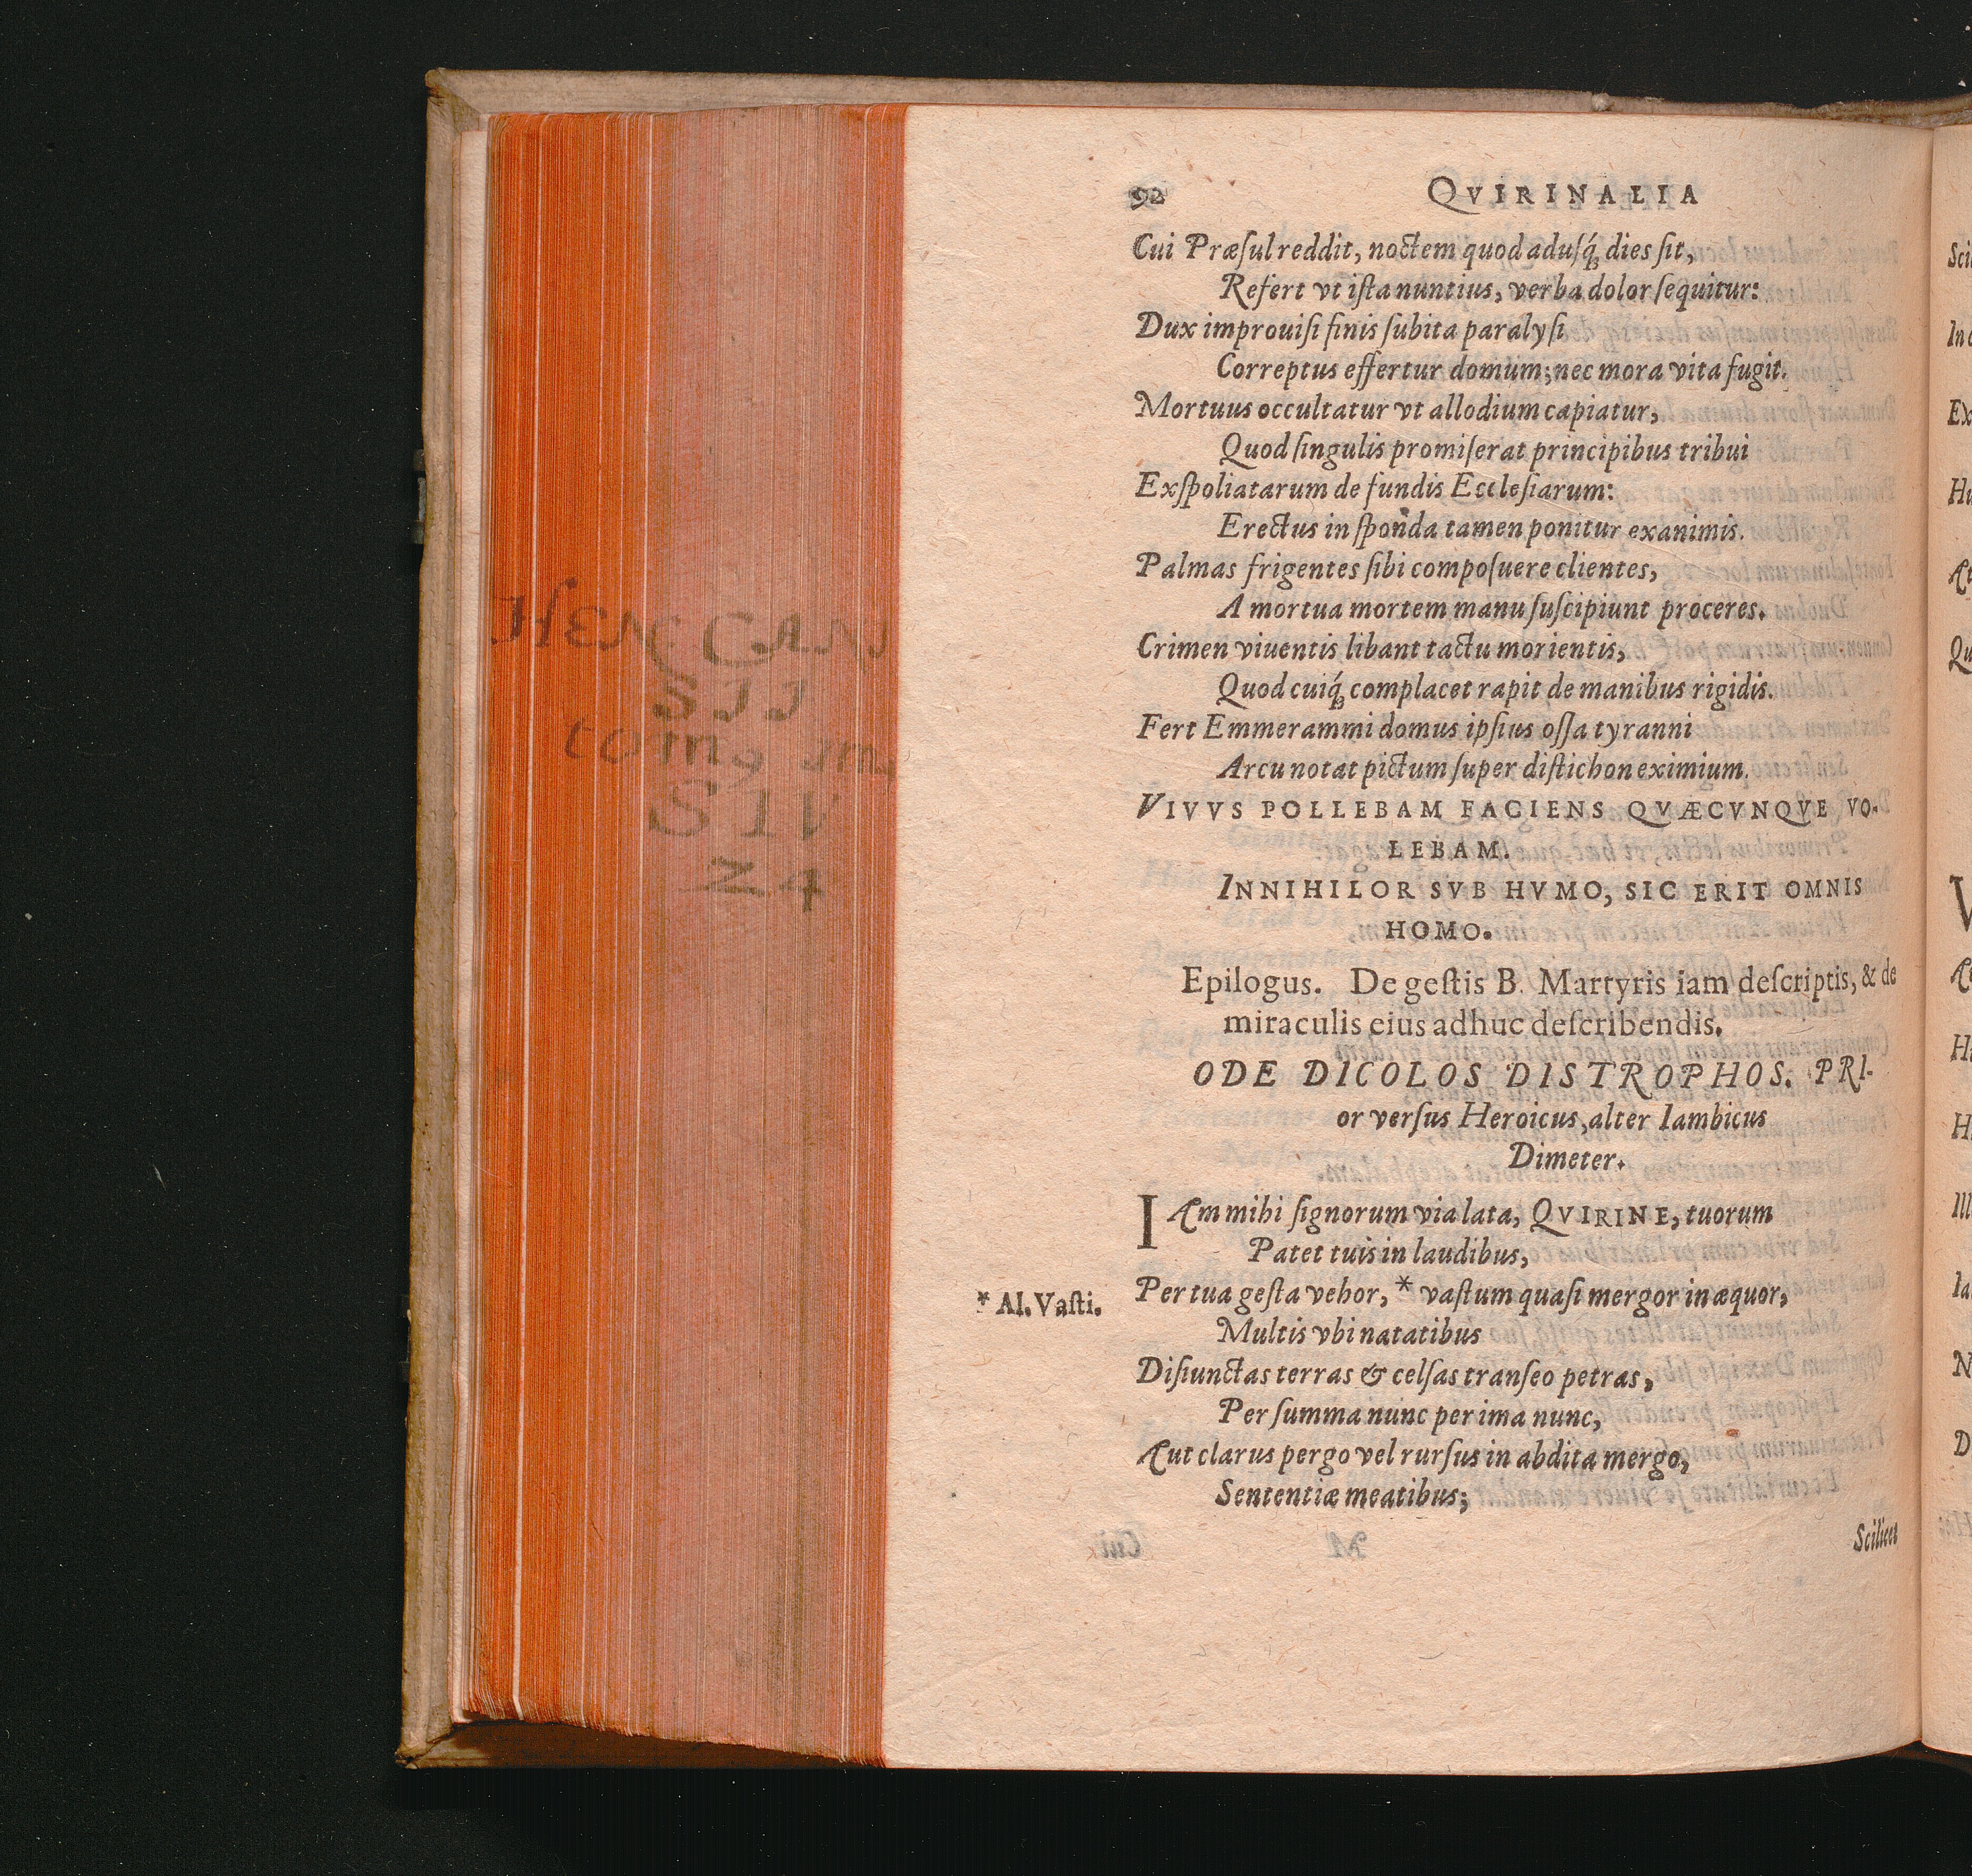 92 QVIRINALIA
Cui Præſul reddit, noctem quod aduſq́ꝫ dies ſit,
Refert vt iſta nuntius, verba dolor ſequitur:
Dux improuiſi finis ſubita paralyſi
Correptus effertur domum; nec mora vita fugit.
Mortuus occultatur vt allodium capiatur,
Quod ſingulis promiſerat principibus tribui
Exſpoliatarum de fundis Eccleſiarum:
Erectus in ſponda tamen ponitur exanimis.
Palmas frigentes ſibi compoſuere clientes,
A mortua mortem manu ſuſcipiunt proceres.
Crimen viuentis libant tactu morientis,
Quod cuiq́ꝫ complacet rapit de manibus rigidis.
Fert Emmerammi domus ipſius oſſa tyranni
Arcu notat pictum ſuper diſtichon eximium.
VIVVS POLLEBAM FACIENS QVÆCVNQVE VO-
LEBAM.
INNIHILOR SVB HVMO, SIC ERIT OMNIS
HOMO.
Epilogus. De geſtis B. Martyris iam deſcriptis, & de
miraculis eius adhuc deſcribendis.
ODE DICOLOS DISTROPHOS. PRI-
or verſus Heroicus, alter Iambicus
Dimeter.
IAm mihi ſignorum via lata, QVIRINE, tuorum
Patet tuis in laudibus,
Per tua geſta vehor, * vaſtum quaſi mergor in æquor,
* Al. Vaſti.
Multis vbi natatibus
Diſiunctas terras & celſas tranſeo petras,
Per ſumma nunc per ima nunc,
Aut clarus pergo vel rurſus in abdita mergo,
Sententiæ meatibus;
Scilicet